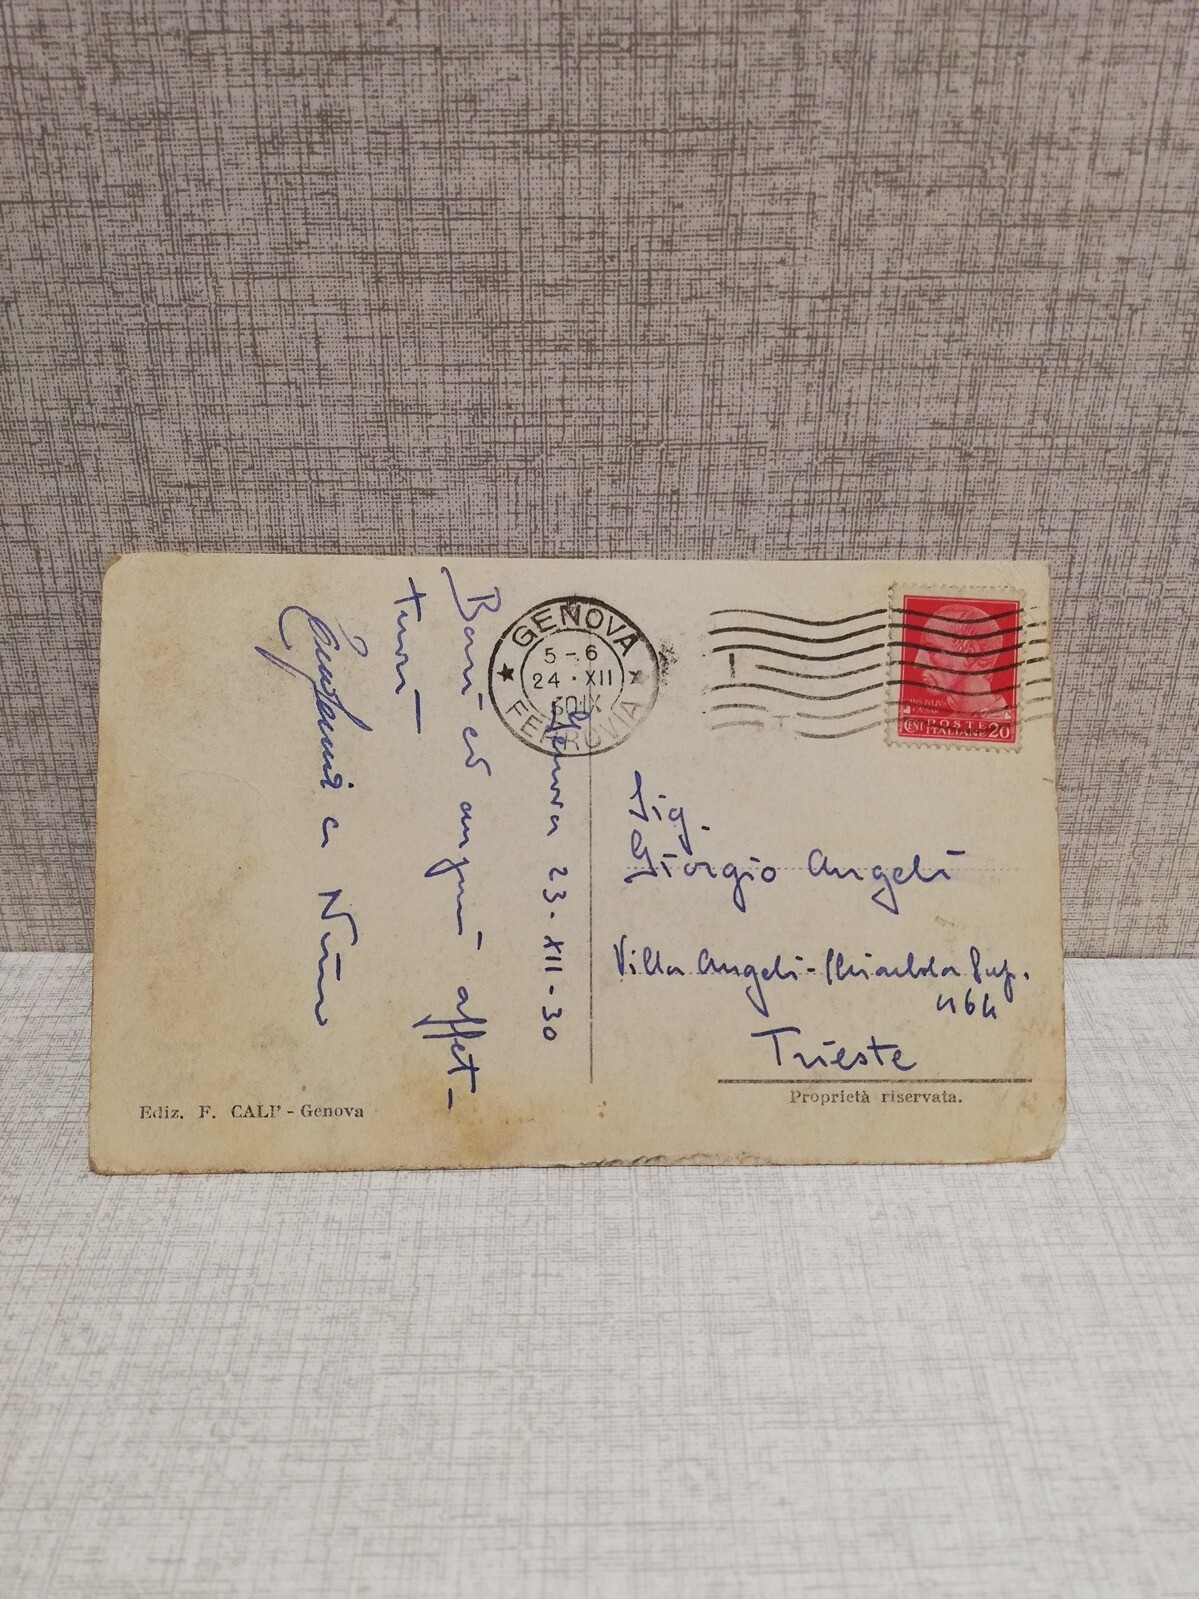 Genova 23·XII-30
Baci ed auguri affet-
tuosi
e Nino
GENOVA
5-6
24·XII
30IX
FERROVIA
POSTE
ITALIANE
CENT 20
Sig.
Giorgio Angeli
Villa Angeli - Chiarbola Sup.
464
Trieste
Ediz. F. CALI' - Genova
Proprietà riservata.